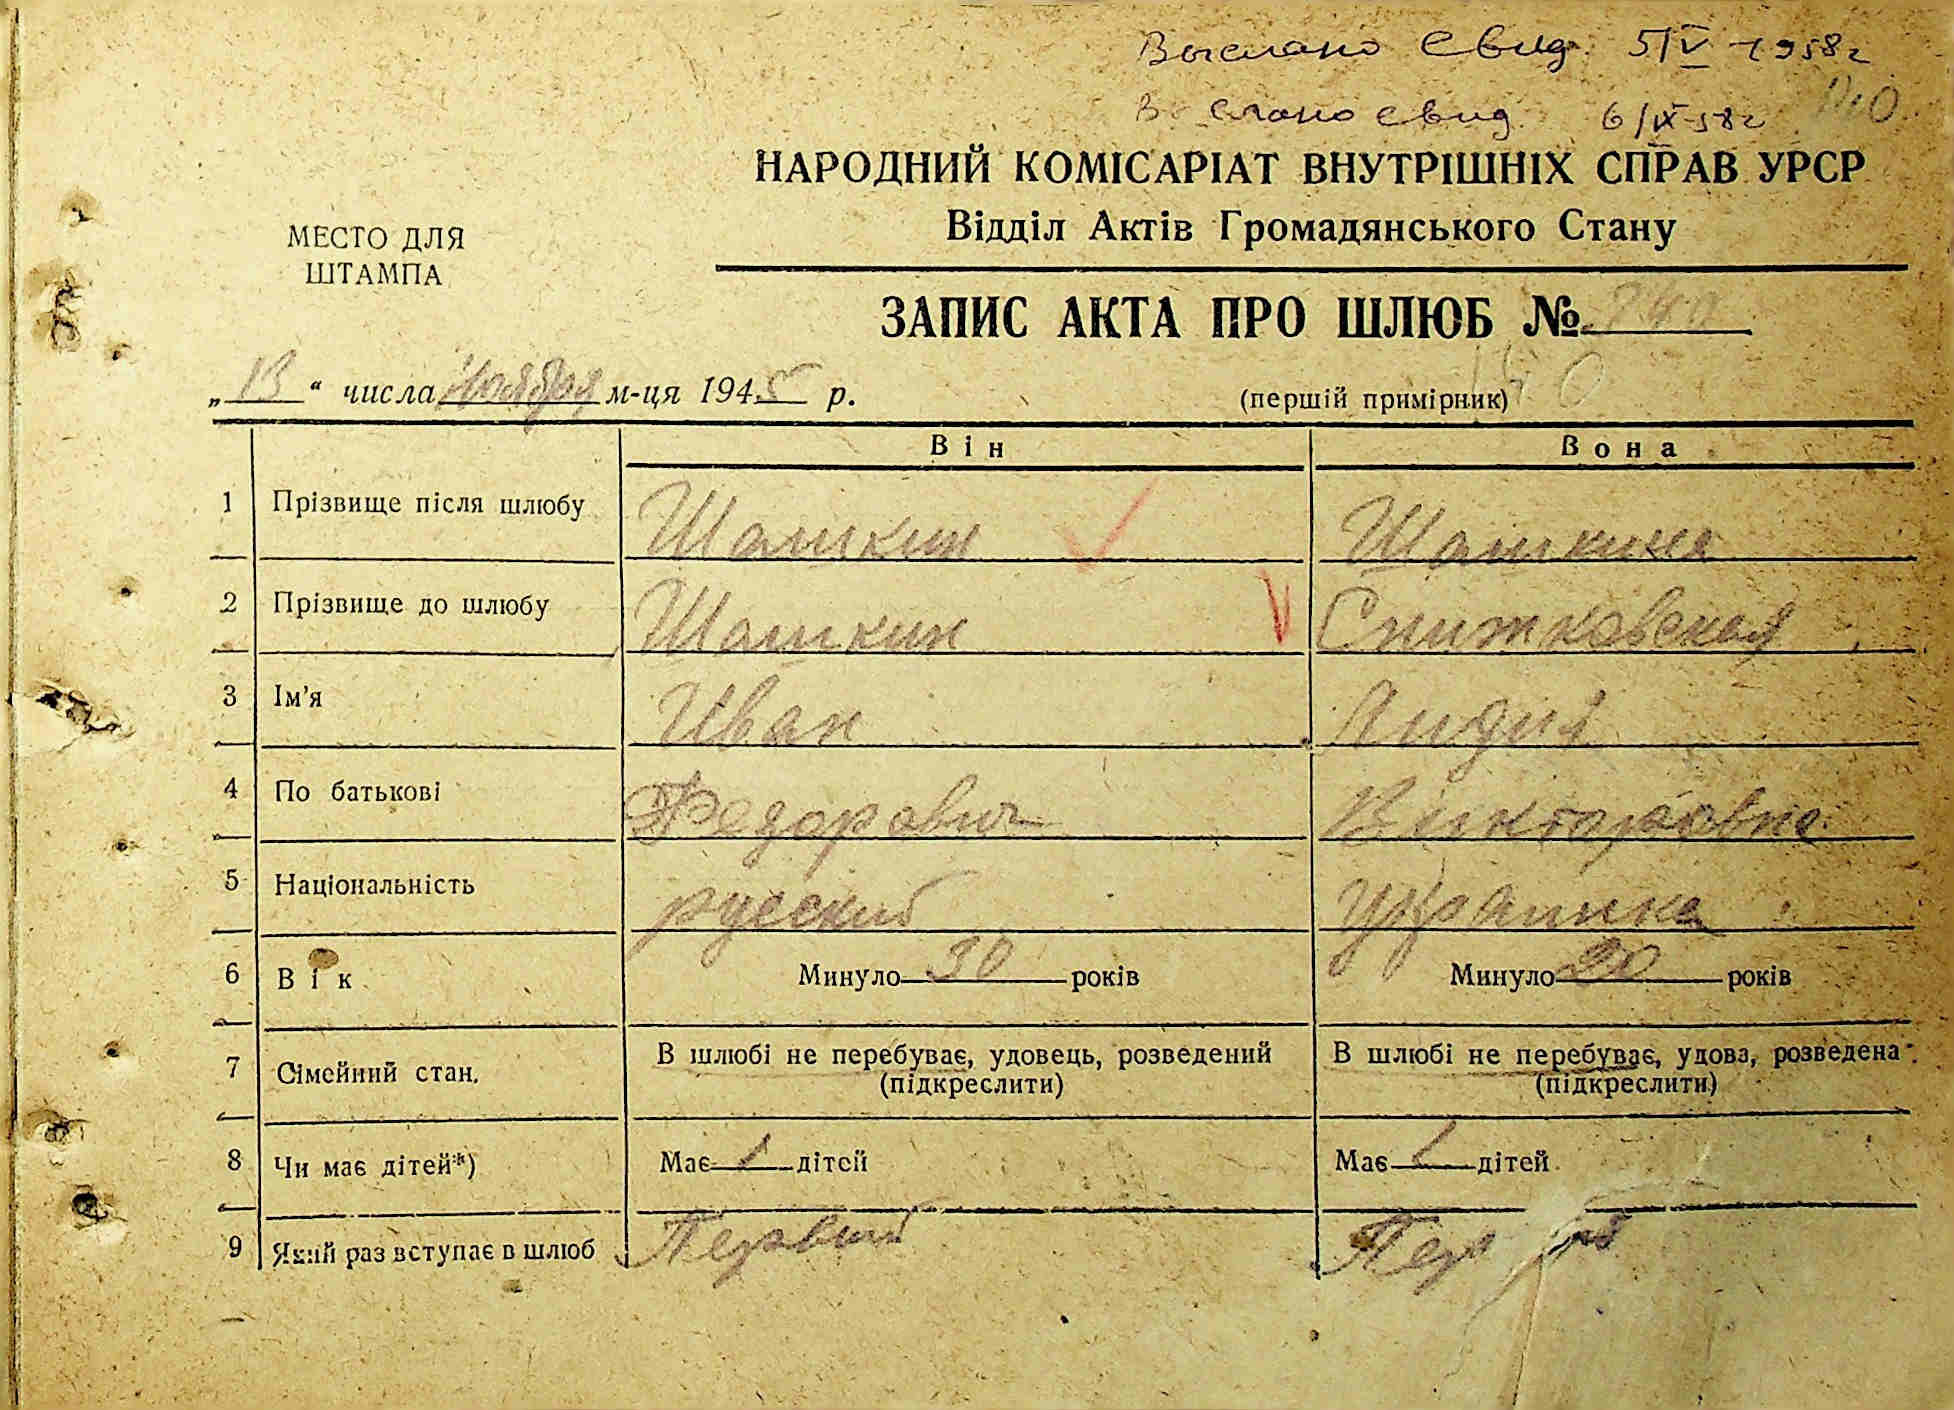 Выслано свид. 5/V-1958г
Выслано свид. 6/IX-58г
НАРОДНИЙ КОМІСАРІАТ ВНУТРІШНІХ СПРАВ УРСР
Відділ Актів Громадянського Стану
МЕСТО ДЛЯ
ШТАМПА
ЗАПИС АКТА ПРО ШЛЮБ №
„13“ числа Ноября м-ця 1945 р.
(першій примірник)
Він Вона
1 Прізвище після шлюбу Шашкин Шашкина
2 Прізвище до шлюбу Шашкин Снижковская
3 Ім'я Иван Лидия
4 По батькові Федорович Викторовна
5 Національність русский Украинка
6 Вік Минуло 30 років Минуло 20 років
7 Сімейний стан. В шлюбі не перебуває, удовець, розведений В шлюбі не перебуває, удова, розведена
(підкреслити) (підкреслити)
8 Чи має дітей*) Має дітей Має дітей
9 Який раз вступає в шлюб Первый